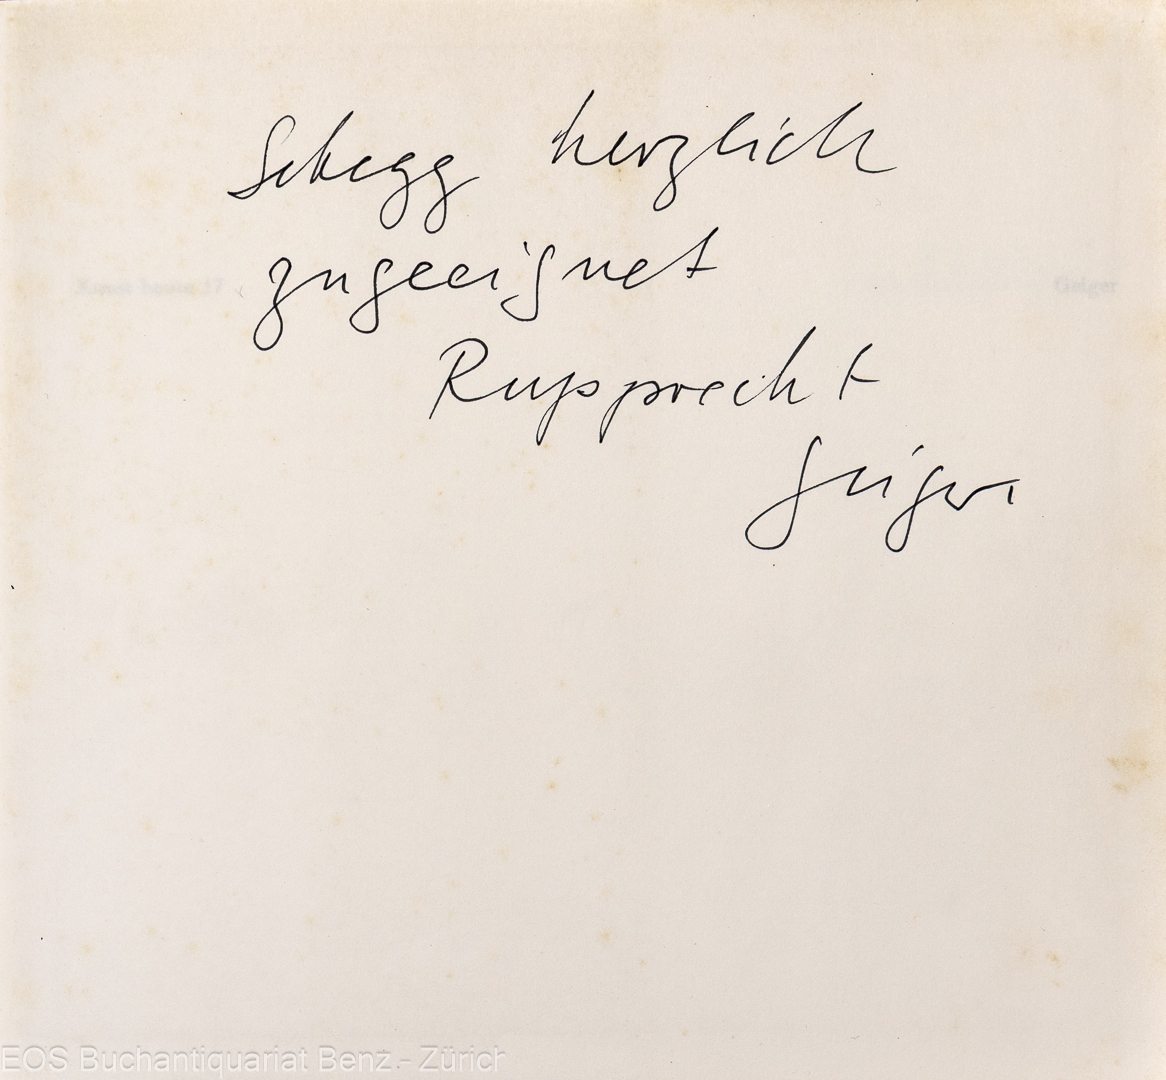 Schegg herzlich
zugeeignet
Kunst heute 17 Geiger
Rupprecht
Geiger
EOS Buchantiquariat Benz - Zürich